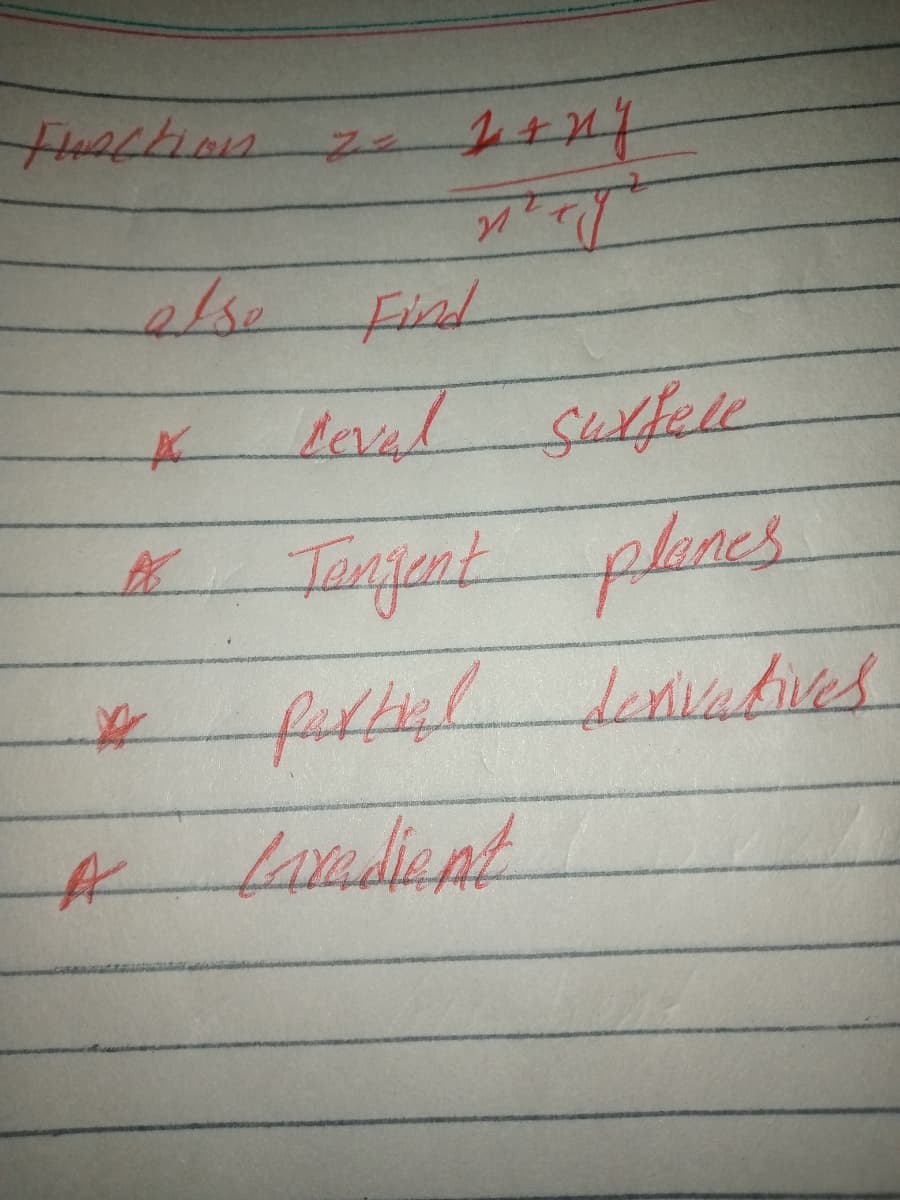 Function z = 1+xy
x²+y²
also Find
* level surface
* Tangent planes
* partial derivatives
* Gradient